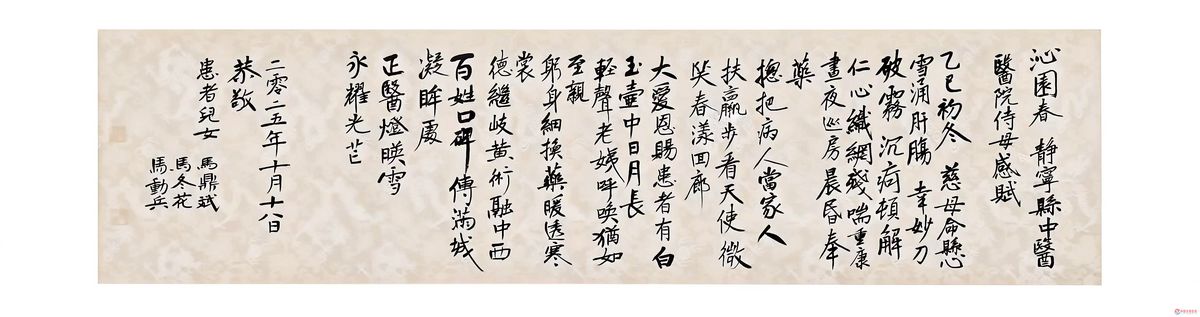 沁園春 靜寧縣中醫
醫院侍母感賦
乙巳初冬 慈母命懸
雪涌肝腸 幸妙刀
破霧 沉疴頓解
仁心織網殘喘重康
晝夜巡房晨昏奉
藥
摠把病人當家人
扶羸步看天使微
笑春漾回廊
大愛恩賜患者有白
玉壷中日月長
輕聲老姨呼喚猶如
至親
躬身細換藥暖透寒
裳
德繼岐黃術融中西
百姓口碑傳滿城
凝眸處
正醫燈暎雪
永耀光芒
二零二五年十月十八日
恭敬
患者兒女
馬鼎斌
馬冬花
馬動兵